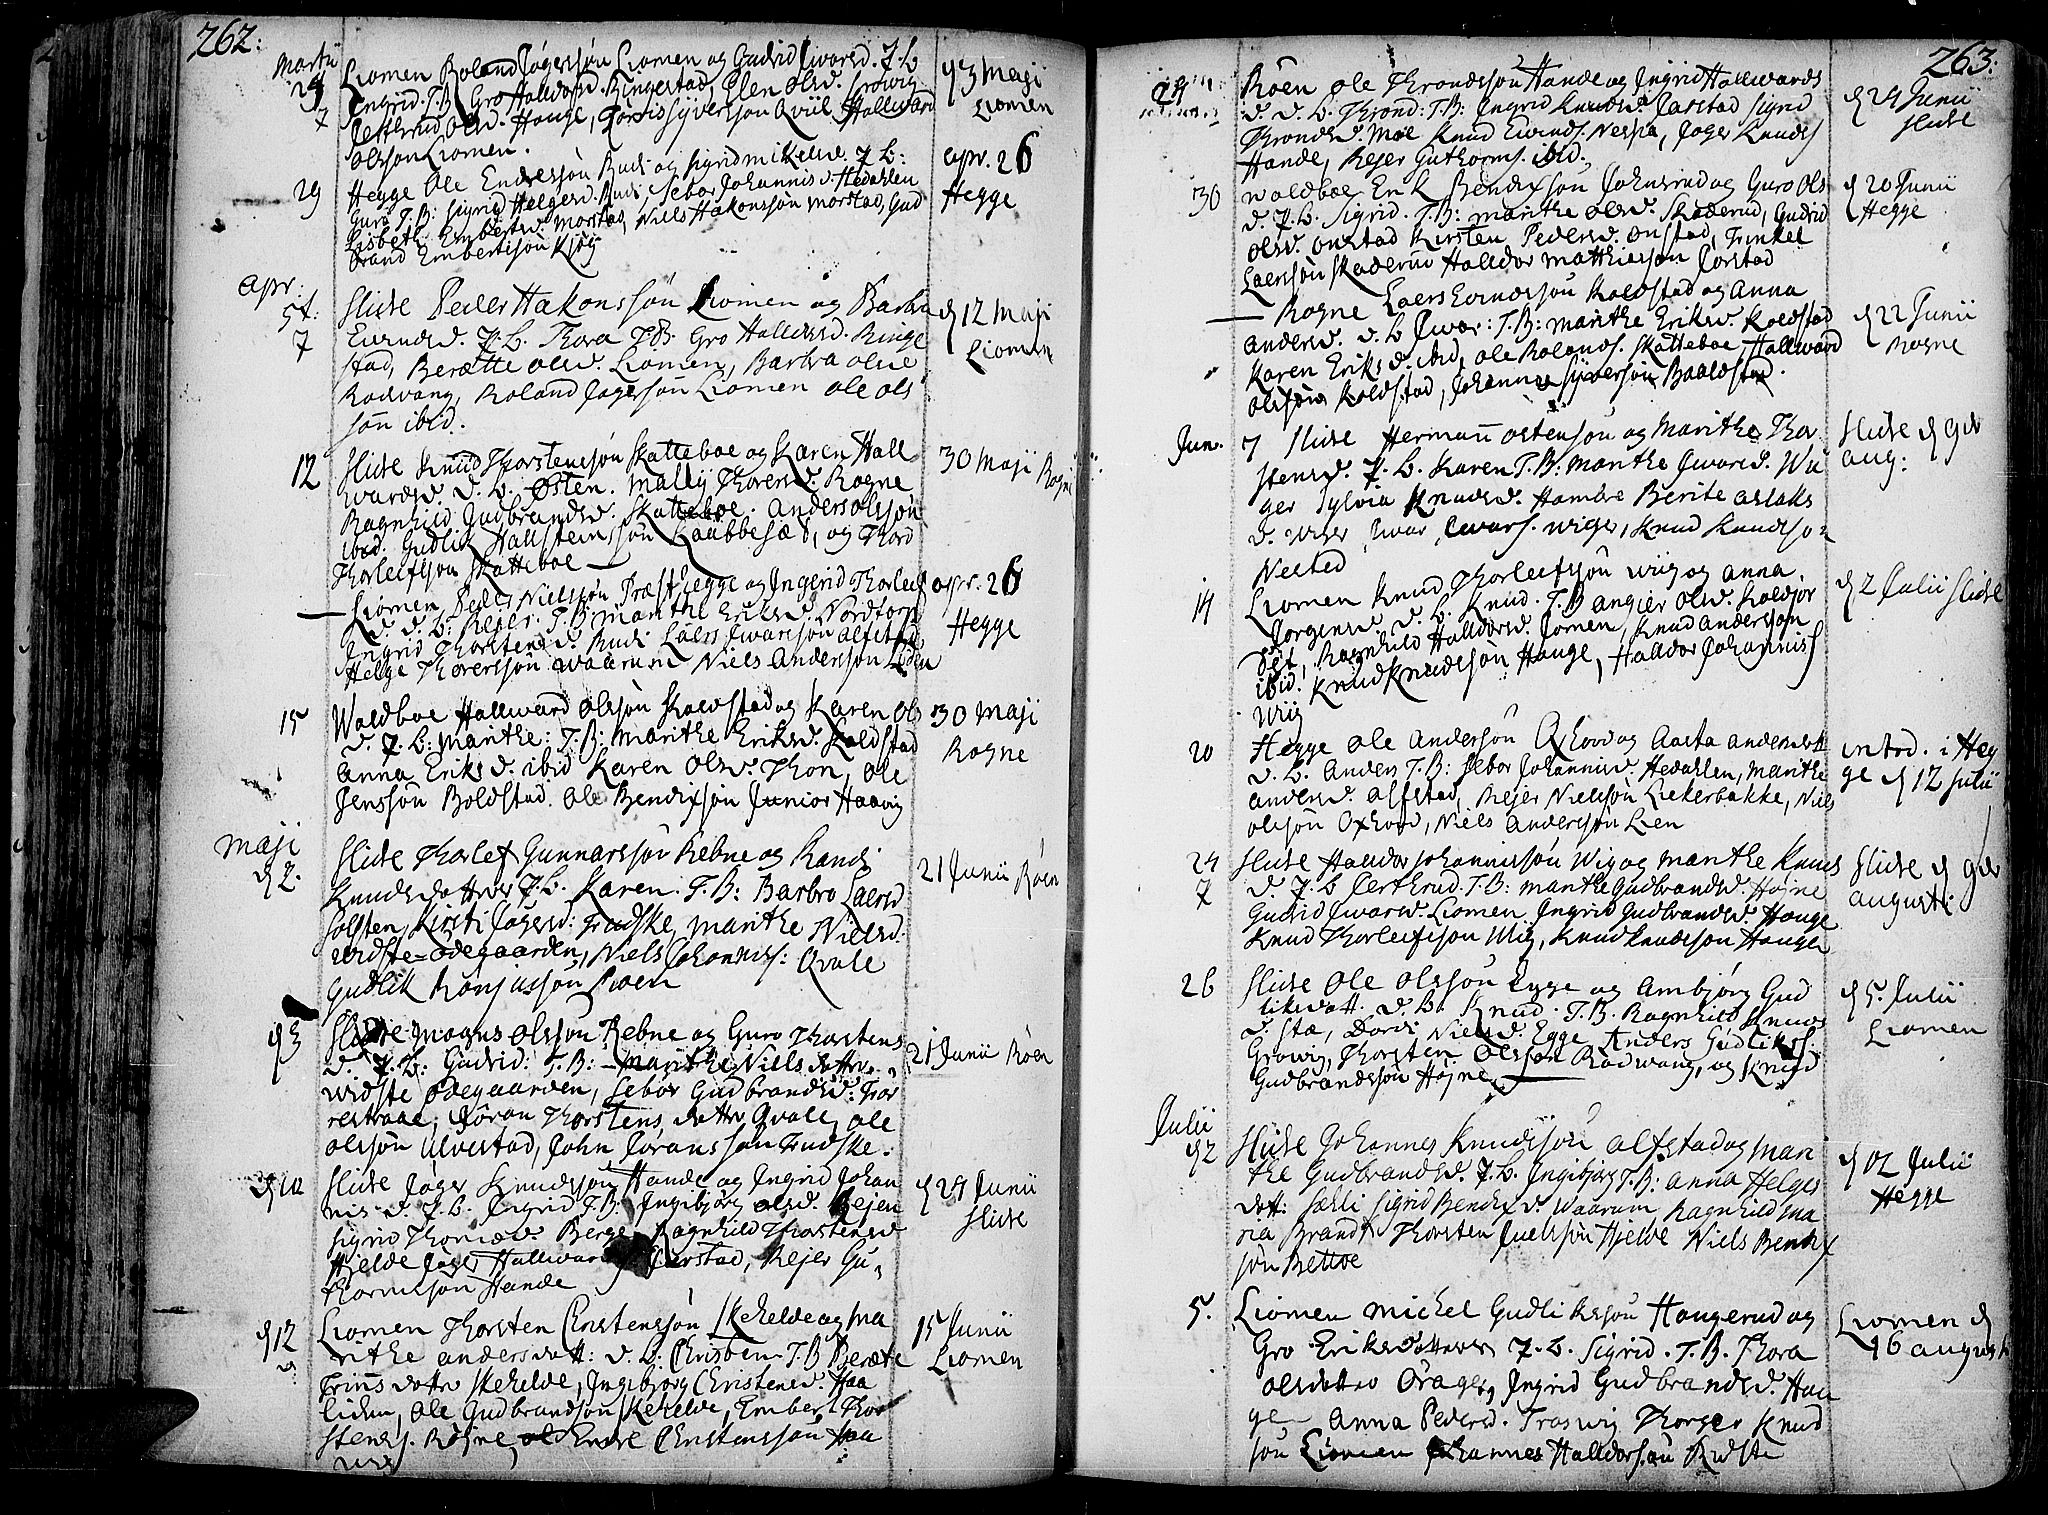 262:
Martii
29 Liomen Roland Jøgerssøn Liomen og Gudrid Iwarsd. J. L.
7 Ingrid. T. B. Gro Halldorsd. Ringestad, Elen Olsd. Growig
Olsd. Hauge, Sÿverssøn Qvale Hallward
Olssøn Liomen.
d 3 Maji
Liomen
29 Hegge Ole Endressøn Rudi og Sigrid Mikelsd. J. L:
Guro T. B: Sigrid Helgesd. Rudi Sebor Johannis d. Hedahlen
Lisbeth Embertsd. Morstad, Niels Hakonssøn Morstad, Gud
brand Embertssøn Kiøs
apr. 26
Hegge
apr:
5t. Slidre Peder Hakonssøn Liomen og Barbra
7 Eivindsd. J. L. Thora T. B: Gro Halldorsd. Ringe
stad, Berætte Olsd. Liomen, Barbra Olsd.
Rodvang, Roland Jøgerssøn Liomen Ole Ols
søn ibid.
d 12 Maji
Liomen
12 Slidre Knud Thorstenssøn Skatteboe og Karen Hall
wardsd. d. L. Østen. Mally Thoresd. Rogne
Ragnhild Gudbrandsd. Skatteboe. Anders Olssøn
ibid. Gudlik Hallsteinssøn Kaabbesæd, og Thord
Thorleifssøn Skatteboe
30 Maji Rogne
— Liomen Peder Nielssøn Præsthegge og Ingerid Thorleifs
d. d. L: Rejer. T. B: Marithe Eriksd. Nordtorp
Ingrid Thorstensd. Rudi Laers Iwarssøn Alfstad
Helge Thorerssøn Waarum Niels Anderssøn Lien
apr. 26
Hegge
15 Waldboe Hallward Olssøn Koldstad og Karen Ols
d. J. L: Marithe: T. B: Marithe Eriksd. Koldstad
Anna Eriksd. ibid Karen Olsd. Thon, Ole
Jenssøn Boldstad. Ole Bendixssøn Junior Haavig
30 Maji
Rogne
Maji
d 2. Slidre Thorlef Gunnarssøn Rebne og Randi
Knudsdatter J. L. Karen. T. B: Barbro Laersd
Folsten, Kirsti Jøgersd: Frudske, Marithe Nielsd.
widste-ødegaarden, Niels Johanniss: Qvale
Gudlik Ronjussøn Røen
21 Junii Røen
d 3 Slidre Mogns Olssøn Rebne og Guro Thorstens
d. J. L: Gudrid: T. B: Marithe Niels datter
widste ødegaarden, Sebor Gudbrandsd:
Jøran Thorstens datter Qvale, Ole
Olssøn Ulvestad, John Joranssøn Frudske.
21 Junii Røen
d 10 Slidre Jøger Knudssøn Hande og Ingrid Johan
nis d. J. L. Ingrid T. B: Ingibjørg Olsd. Rejen
Sigrid Thomæsd. Berge, Ragnhild Thorstensd
Hjelde Jøger Hallward Jarstad, Rejer Gu-
thormssøn Hande
d 24 Junii
Slidre
d 12 Liomen Thorsten Christenssøn Skehelde og Ma
rithe Andersdatt: d. L: Christen T. B Beræte
Finns datter Skehelde, Ingibjørg Christensd. Haa
liden, Ole Gudbrandssøn Skehelde, Embert Thor
stens s. Rogne Endre Christenssøn Haa
15 Junii
Liomen
263:
24 Røen Ole Throndssøn Hande og Ingrid Hallwards
d. d. L. Thrond: T. B: Ingrid Knudsd. Jarstad Sigrid
Thronds d. Moe Knud Eivinds. Nespa, Jøger Knuds
Hande, Rejer Guthorms. ibid.
d 24 Junii
Slidre
30 Waldboe Erik Bendixssøn Johnsrud og Guro Ols
d. J. L. Sigrid. T. B: Marithe Olsd. Skaderud, Gudrid
Olsd. Onstad Kirsten Pedersd. Onstad, Trinkel
Laerssøn Skaderud Halldor Matthiessøn Jorstad
d 20 Junii
Hegge
— Rogne Laers Eivindssøn Koldstad og Anna
Andersd. d. L Iwar: T. B: Marithe Eriksd. Koldstad
Karen Eriks d. ibid, Ole Rolands. Skatteboe, Hallward
Olssøn Koldstad, Johannes Sÿverssøn Baaldstad.
d 22 Junii
Rogne
Jun. 7 Slidre Hermann Ostenssøn og Marithe Thor-
stensd. J. L. Karen T. B: Marithe Iwarsd. Wi
ger Sylvia Knudsd. Hambre Berite Aslaks
d. Wiger, Iwar Iwars. Wiger, Knud Knudssøn
Nested
Slidre d 9de
aug:
14 Liomen Knud Thorleifssøn Wiig og Anna
Jørgensd d. L. Knud. T. B Angier Olsd.
Ragnhild Halldorsd. Jomen, Knud Anderssøn
ibid. Knud Knudssøn Hauge, Halldor Johannis s
Wiig
d 2 Julii Slidre
20 Hegge Ole Anderssøn Oxhovd og Aasta Andersdatt
d. L. Anders T. B: Sebor Johannisd. Hedahlen, Marithe
Andersd. Alfstad, Rejer Nielssøn Liekerbakke, Niels
Olssøn Oxhovd, Niels Anderssøn Lien
introd. i Heg
ge d 12 Julii
24 Slidre Halldor Johannissøn Wig og Marithe Knuds
7 d. J. L Certhrud. T. B: Marithe Gudbrandsd. Højne
Gudrid Iwarsd. Liomen, Ingrid Gudbrandsd. Hauge
Knud Thorleifssøn Wiig, Knud Knudssøn Hauge
Slidre d 9de
augusti
26 Slidre Ole Olssøn Egge og Ambjørg Gud
liksdatt. d. L. Knud. T. B. Ragnhild Knuds
d. sta, Dordi Nielsd. Egge Anders Gudliks s.
Growig, Thorsten Olssøn Rodwang, og Knud
Gudbrandssøn Højne
d 5. Julii
Liomen
Julii
d 2 Slidre Johannes Knudssøn Alfstad og Mari
the Gudbrandsd. J. L. Ingibjørg T. B: Anna Helges
datt: Sælli Sigrid Bendix d. Waarum Ragnhild Ma
ria Brandt Thorsten Juelssøn Hjelde Niels Bendix
søn Bettoe
d 12 Julii
Hegge
5. Liomen Michel Gudlikssøn Haugerud og
Gro Eriksdatter J. L. Sigrid. T. B. Thora
Olsdatter Ørager, Ingrid Gudbrandsd. Hau
ge Anna Pedersd. Troswig Thorger Knud
søn Liomen Johannes Halldorssøn Ridste
Liomen d
16 august